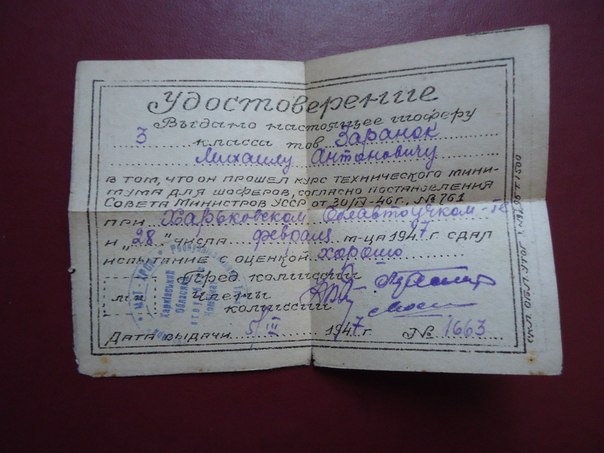 Удостоверение
Выдано настоящее шоферу
3 класса тов. Заранок
Михаилу Антоновичу
в том, что он прошел курс технического мини-
мума для шоферов, согласно постановления
Совета Министров УССР от 30/ІѴ-46г. №761
при Харьковском Облавтоучком-те
и "28" числа февраля м-ца 1947 сдал
испытание с оценкой хорошо
Пред комиссии
Члены
комиссии
Дата выдачи 5/III 1947г. № 1663